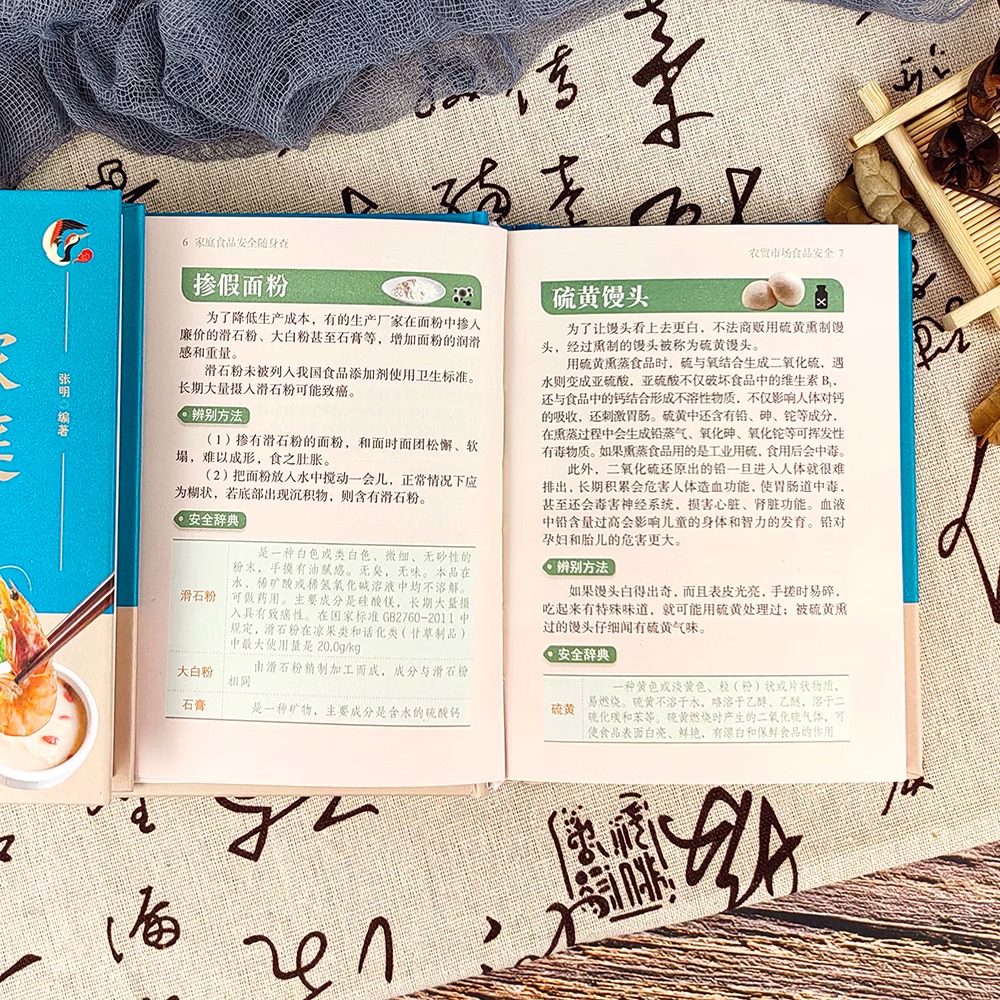 张明 编著
6 家庭食品安全随身查
掺假面粉
为了降低生产成本，有的生产厂家在面粉中掺入
廉价的滑石粉、大白粉甚至石膏等，增加面粉的润滑
感和重量。
滑石粉未被列入我国食品添加剂使用卫生标准。
长期大量摄入滑石粉可能致癌。
辨别方法
（1）掺有滑石粉的面粉，和面时面团松懈、软
塌，难以成形，食之肚胀。
（2）把面粉放入水中搅动一会儿，正常情况下应
为糊状，若底部出现沉积物，则含有滑石粉。
安全辞典
滑石粉
是一种白色或类白色、微细、无砂性的
粉末，手摸有油腻感。无臭，无味。本品在
水、稀矿酸或稀氢氧化碱溶液中均不溶解。
可做药用。主要成分是硅酸镁，长期大量摄
入具有致癌性。在国家标准GB2760—2011中
规定，滑石粉在凉果类和话化类（甘草制品）
中最大使用量是20.0g/kg
大白粉
由滑石粉精制加工而成，成分与滑石粉
相同
石膏
是一种矿物，主要成分是含水的硫酸钙
农贸市场食品安全 7
硫黄馒头
为了让馒头看上去更白，不法商贩用硫黄熏制馒
头，经过熏制的馒头被称为硫黄馒头。
用硫黄熏蒸食品时，硫与氧结合生成二氧化硫，遇
水则变成亚硫酸，亚硫酸不仅破坏食品中的维生素 B₁，
还与食品中的钙结合形成不溶性物质，不仅影响人体对钙
的吸收，还刺激胃肠。硫黄中还含有铅、砷、铊等成分，
在熏蒸过程中会生成铅蒸气、氧化砷、氧化铊等可挥发性
有毒物质。如果熏蒸食品用的是工业用硫，食用后会中毒。
此外，二氧化硫还原出的铅一旦进入人体就很难
排出，长期积累会危害人体造血功能，使胃肠道中毒，
甚至还会毒害神经系统，损害心脏、肾脏功能。血液
中铅含量过高会影响儿童的身体和智力的发育。铅对
孕妇和胎儿的危害更大。
辨别方法
如果馒头白得出奇，而且表皮光亮，手搓时易碎，
吃起来有特殊味道，就可能用硫黄处理过；被硫黄熏
过的馒头仔细闻有硫黄气味。
安全辞典
硫黄
一种黄色或淡黄色、粒（粉）状或片状物质，
易燃烧。硫黄不溶于水，略溶于乙醇、乙醚，溶于二
硫化碳和苯等。硫黄燃烧时产生的二氧化硫气体，可
使食品表面白亮、鲜艳，有漂白和保鲜食品的作用